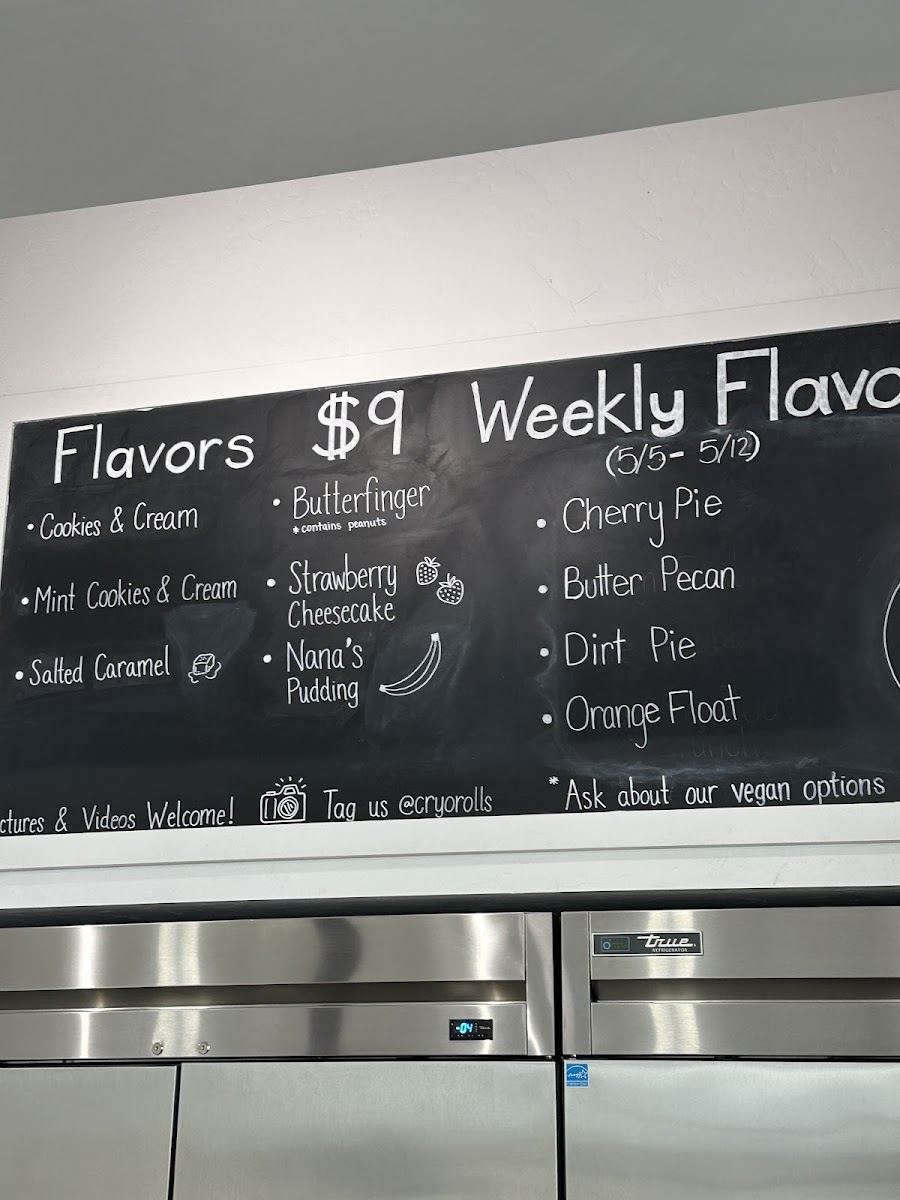 Flavors $9
• Cookies & Cream
• Mint Cookies & Cream
• Salted Caramel
• Butterfinger
*contains peanuts
• Strawberry
Cheesecake
• Nana's
Pudding
Weekly Flavo
(5/5- 5/12)
• Cherry Pie
• Butter Pecan
• Dirt Pie
• Orange Float
ctures & Videos Welcome!
Tag us @cryorolls
*Ask about our vegan options
true
REFRIGERATOR
-04